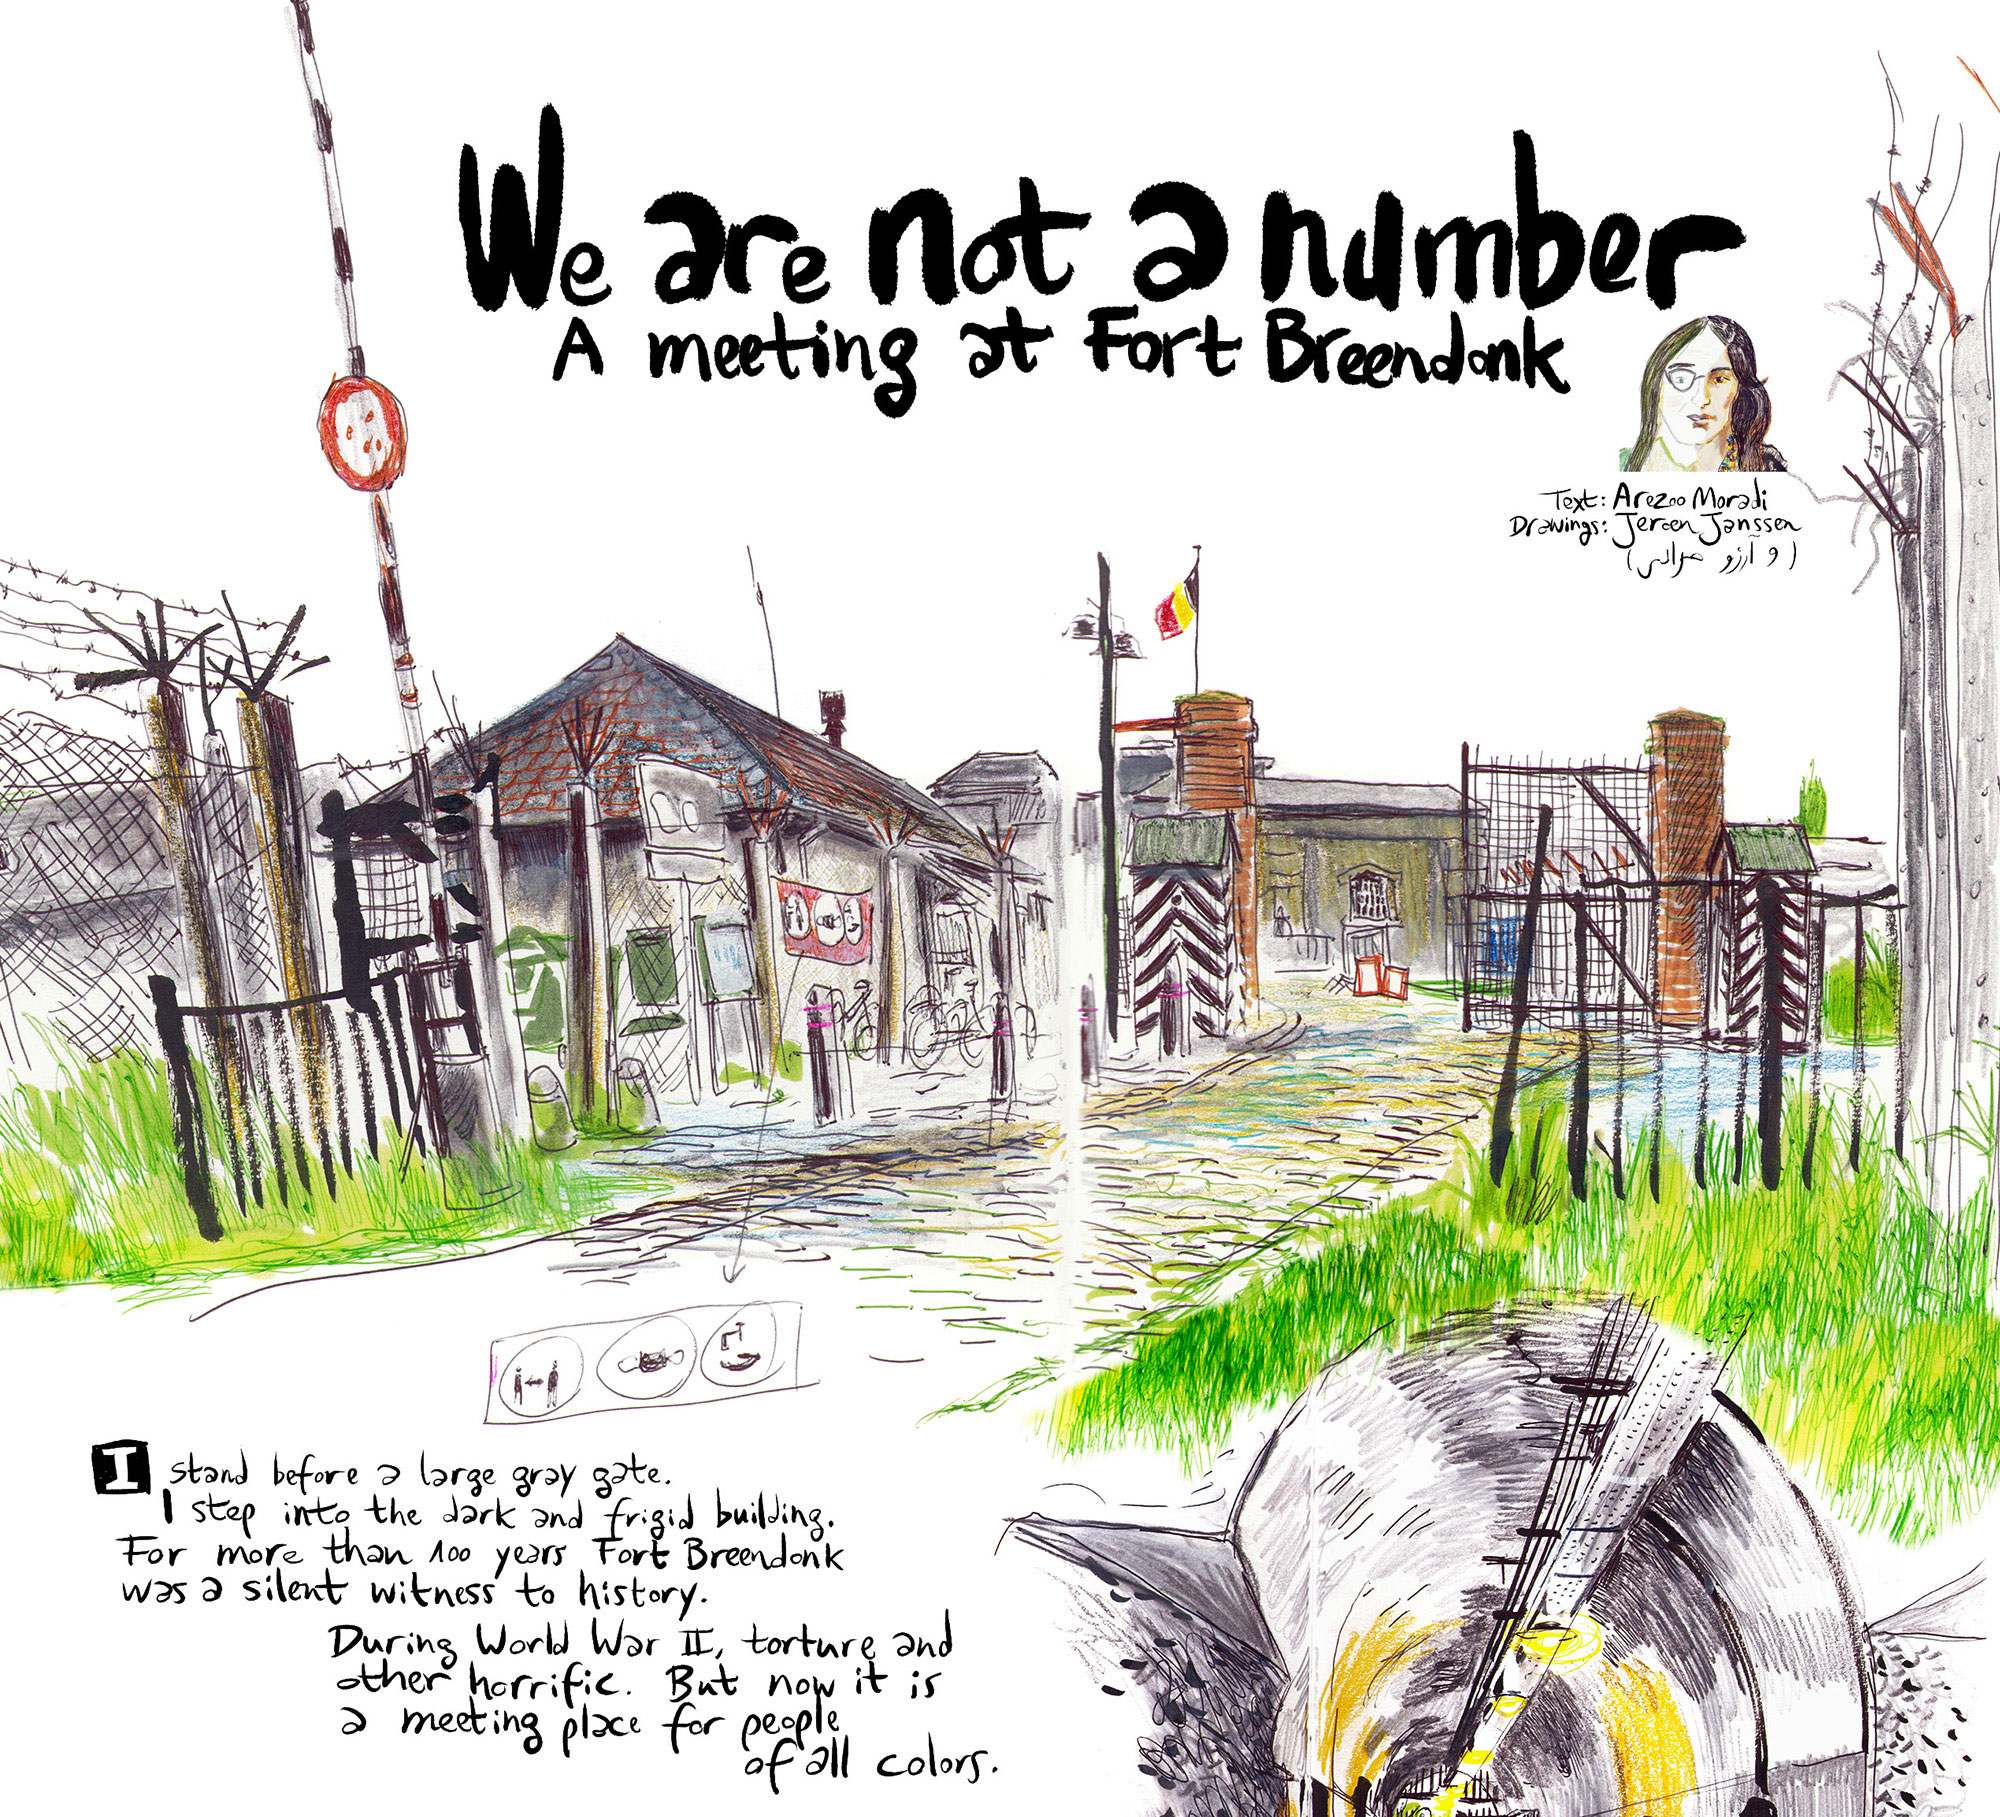 We are not a number
A meeting at Fort Breendonk
Text: Arezoo Moradi
Drawings: Jeroen Janssen
(و آرزو مرادی)
I stand before a large gray gate.
I step into the dark and frigid building.
For more than 100 years Fort Breendonk
was a silent witness to history.
During World War II, torture and
other horrific. But now it is
a meeting place for people
of all colors.